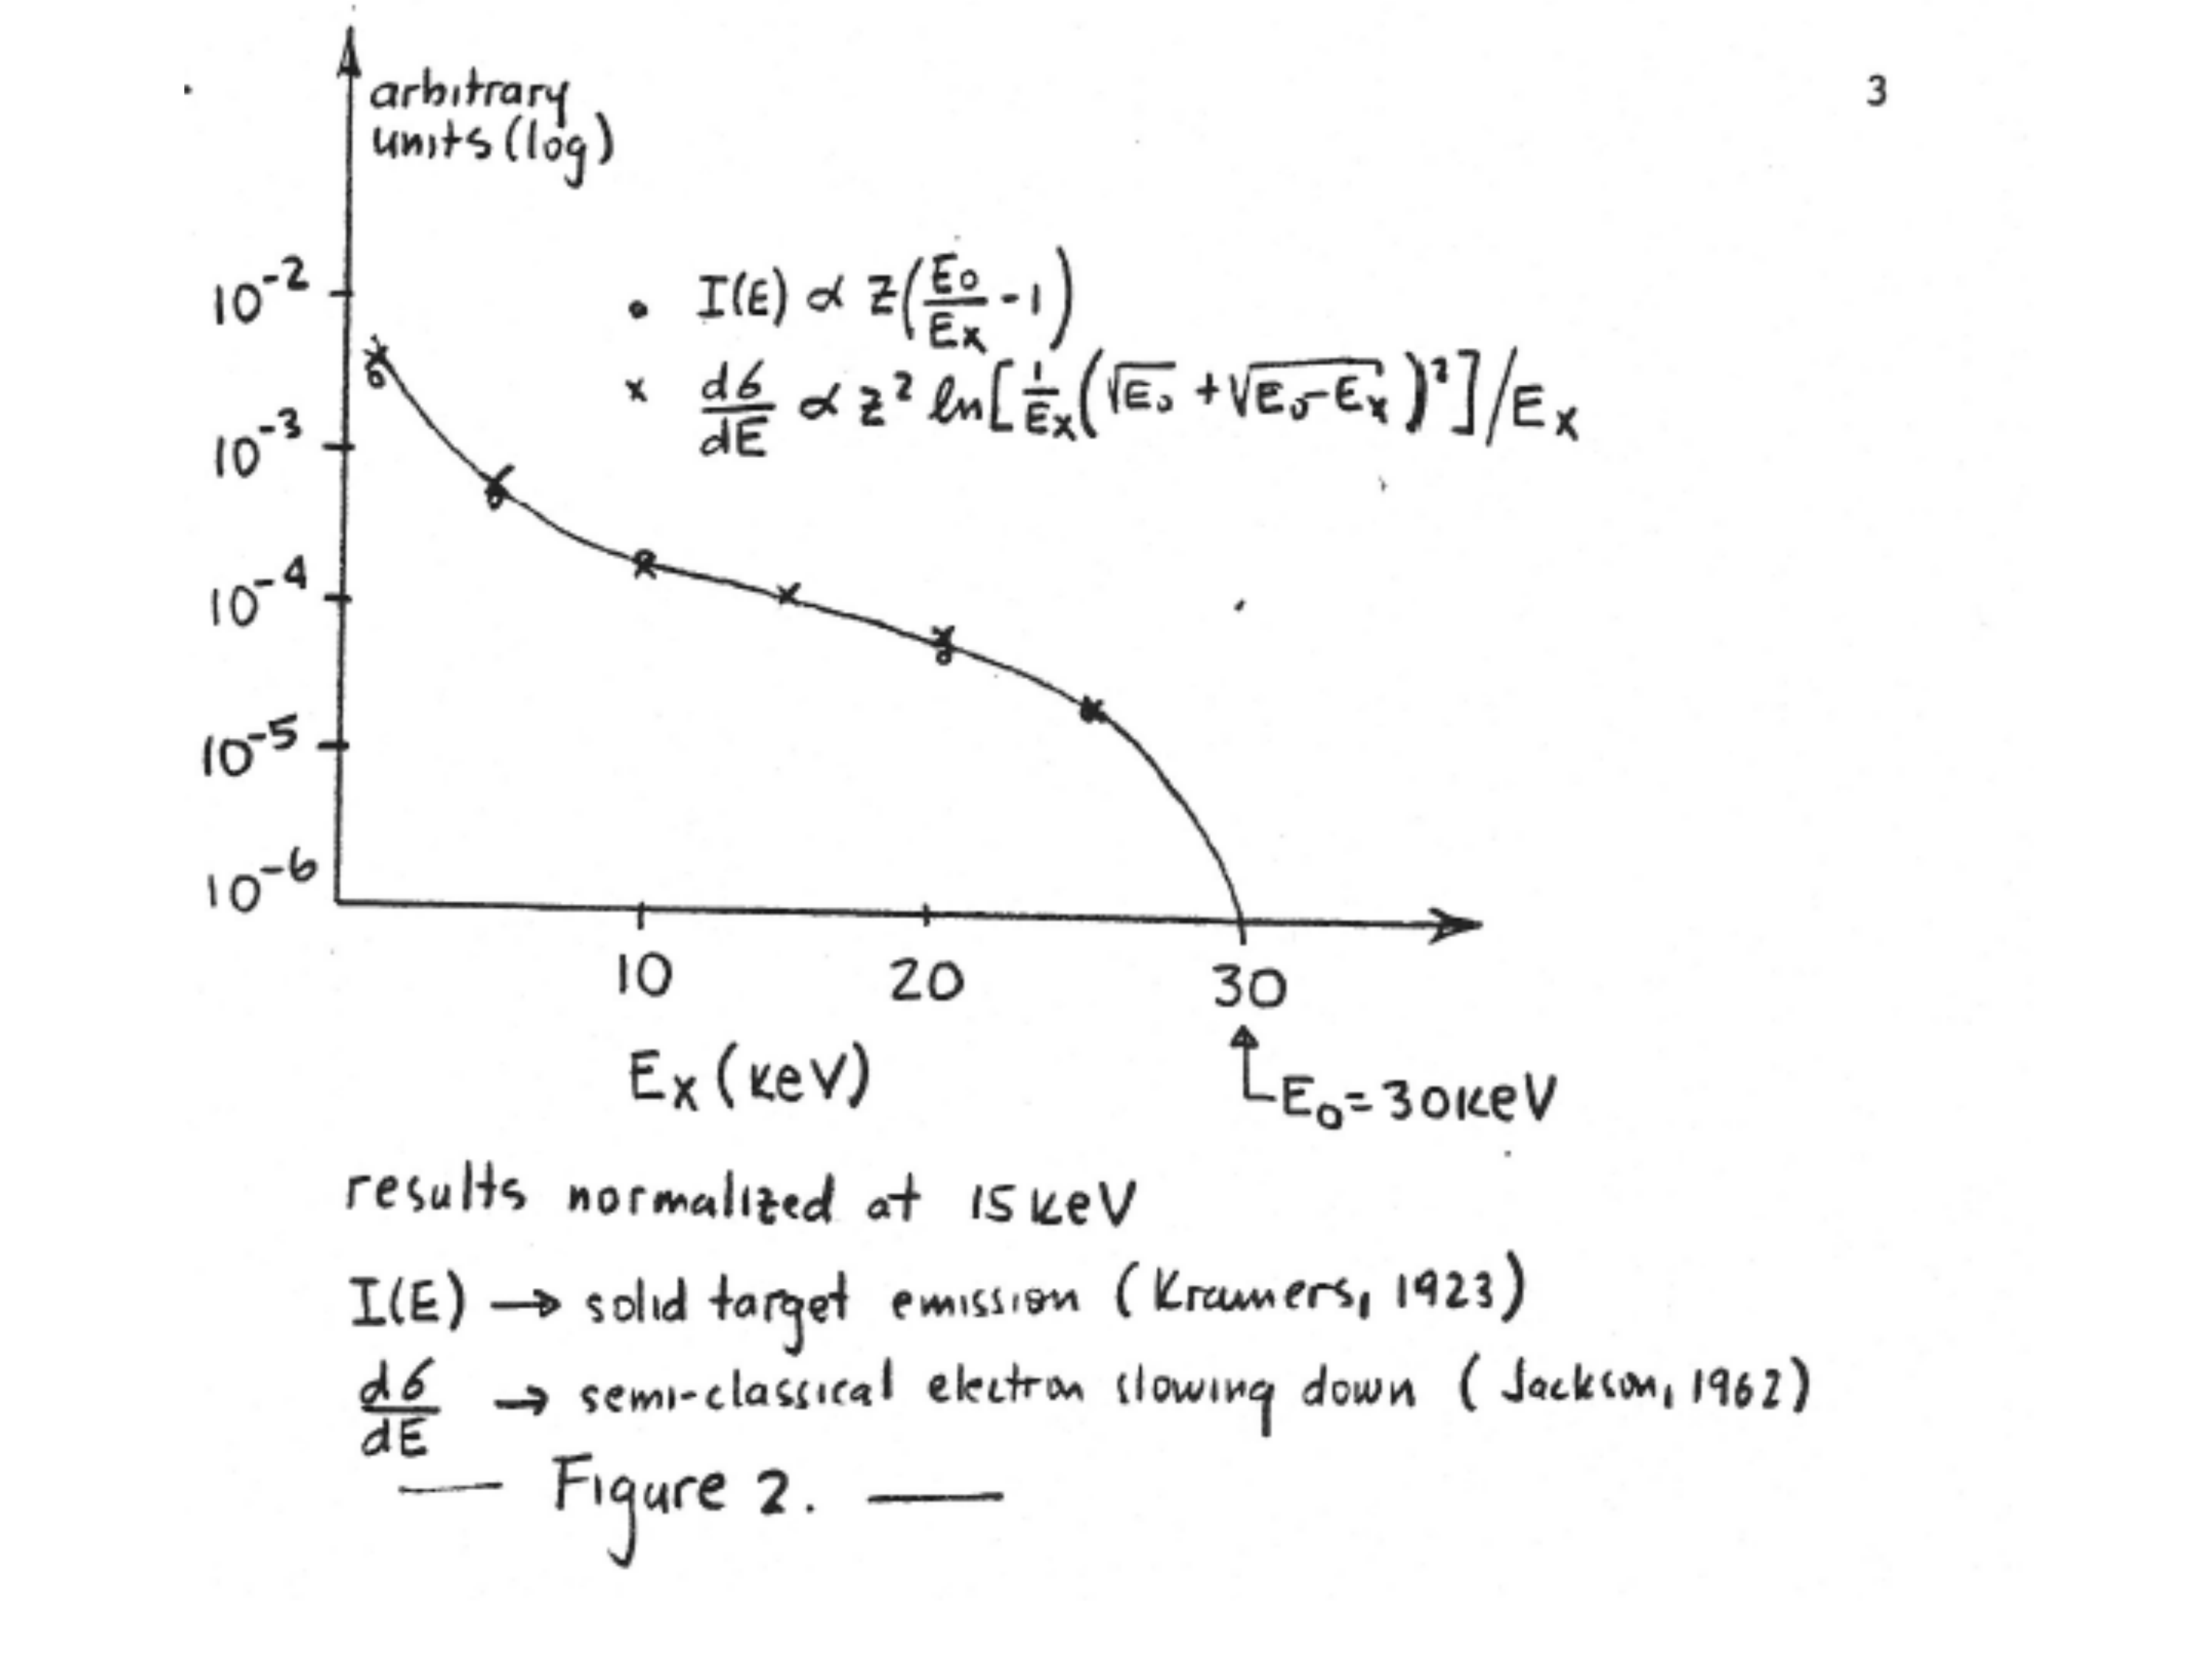 3
arbitrary
units (log)
10⁻²
10⁻³
10⁻⁴
10⁻⁵
10⁻⁶
• I(E) ∝ Z(E₀/Eₓ - 1)
x dσ/dE ∝ Z² ln[1/Eₓ(√E₀ + √E₀-Eₓ)²]/Eₓ
10 20 30
Eₓ (keV)
E₀=30keV
results normalized at 15 keV
I(E) → solid target emission (Kramers, 1923)
dσ/dE → semi-classical electron slowing down (Jackson, 1962)
— Figure 2. —